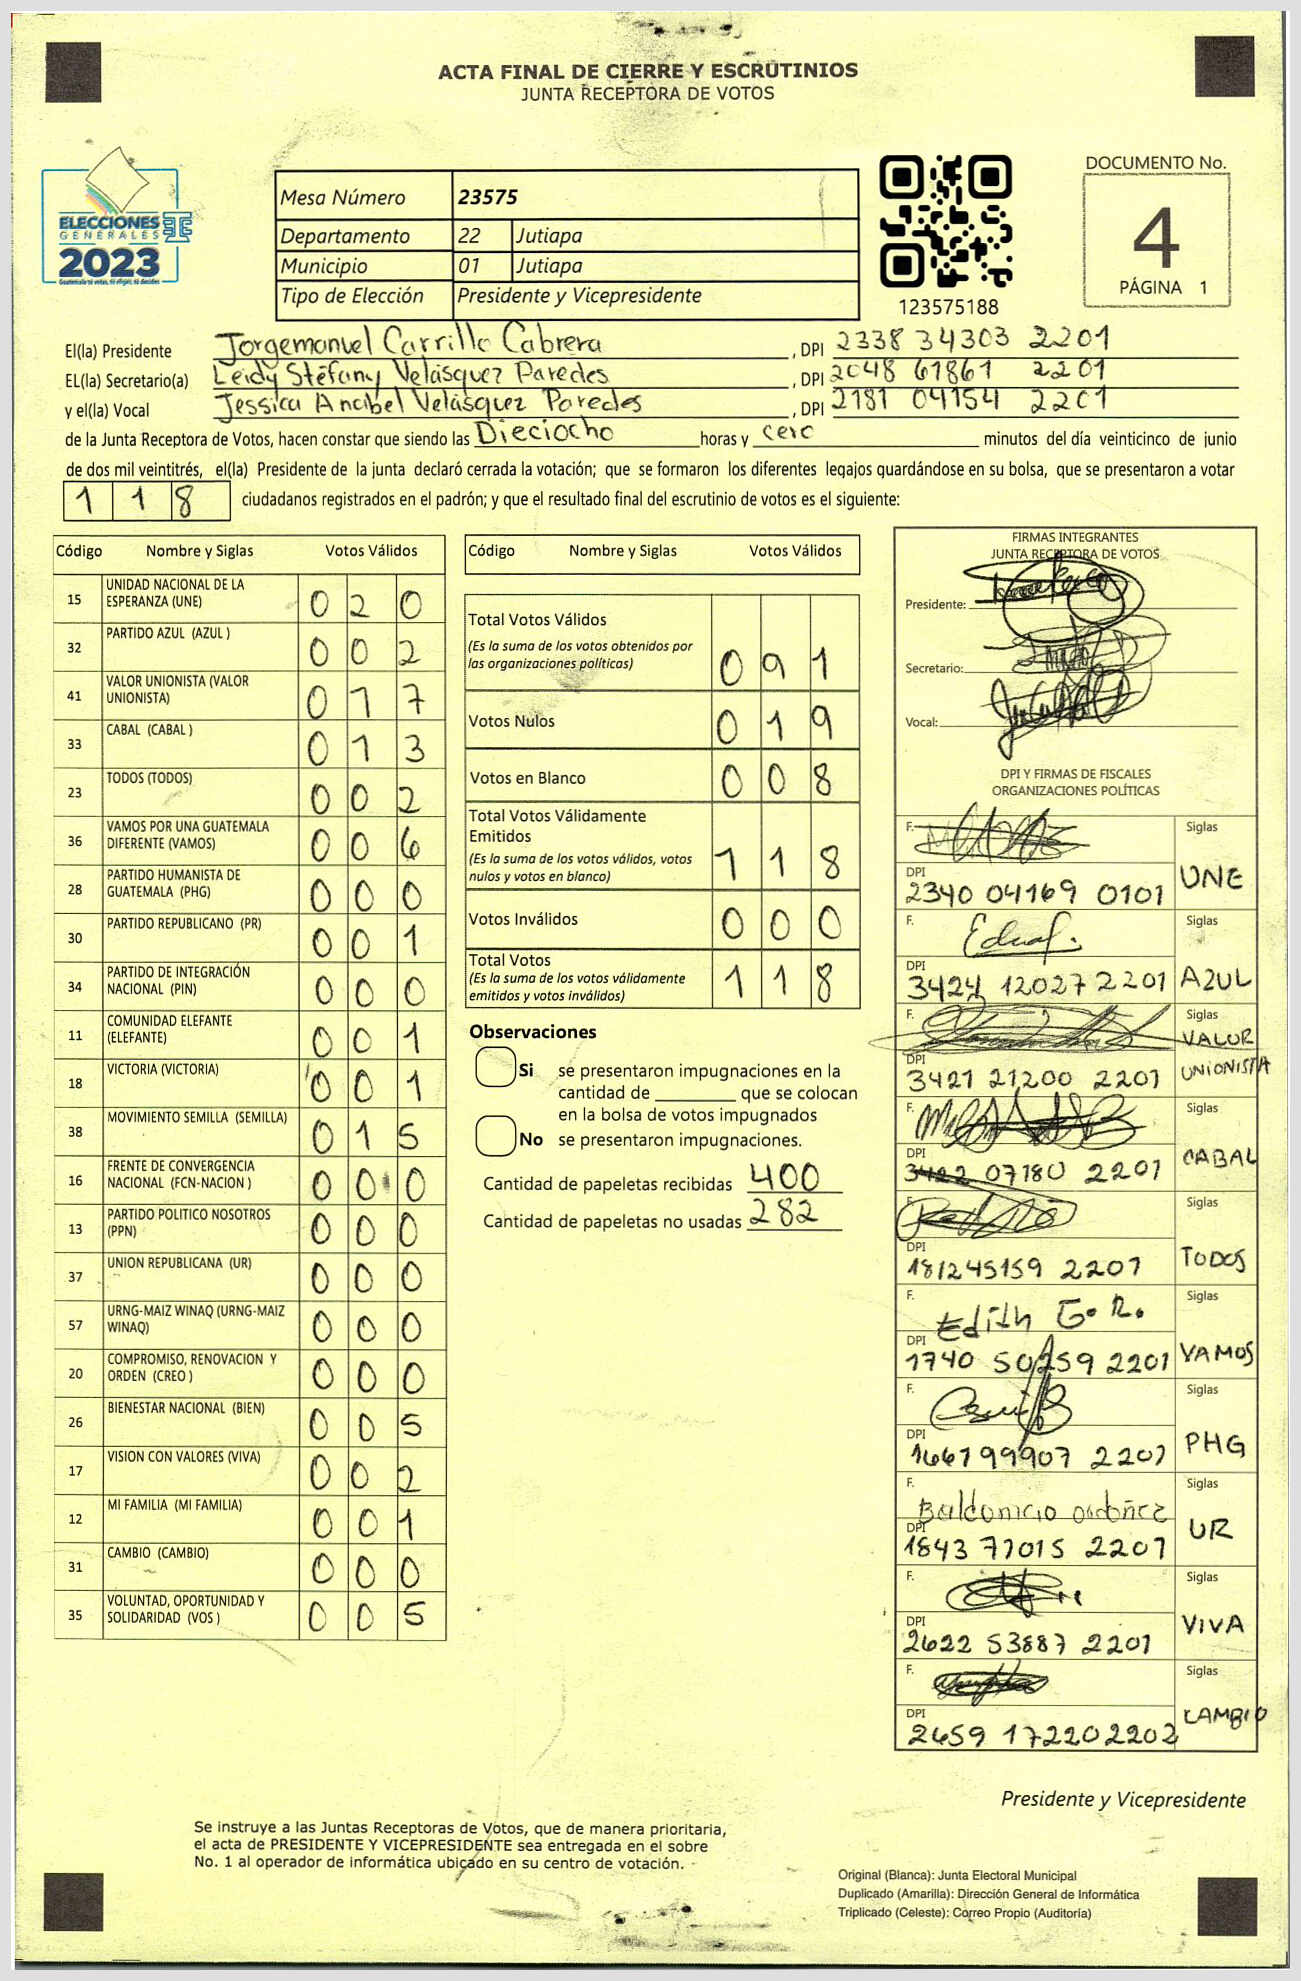 ACTA FINAL DE CIERRE Y ESCRUTINIOS
JUNTA RECEPTORA DE VOTOS
ELECCIONES
GENERALES
2023
Guatemala tú votas, tú eliges, tú decides
Mesa Número 23575
Departamento 22 Jutiapa
Municipio 01 Jutiapa
Tipo de Elección Presidente y Vicepresidente
123575188
DOCUMENTO No.
4
PÁGINA 1
El(la) Presidente Jorgemanuel Carrillo Cabrera , DPI 2338 34303 2201
EL(la) Secretario(a) Leidy Stéfany Velásquez Paredes , DPI 2048 61861 2201
y el(la) Vocal Jessica Anabel Velásquez Paredes , DPI 2181 04154 2201
de la Junta Receptora de Votos, hacen constar que siendo las Dieciocho horas y cero minutos del día veinticinco de junio
de dos mil veintitrés, el(la) Presidente de la junta declaró cerrada la votación; que se formaron los diferentes legajos guardándose en su bolsa, que se presentaron a votar
118 ciudadanos registrados en el padrón; y que el resultado final del escrutinio de votos es el siguiente:
Código Nombre y Siglas Votos Válidos
15 UNIDAD NACIONAL DE LA ESPERANZA (UNE) 020
32 PARTIDO AZUL (AZUL ) 002
41 VALOR UNIONISTA (VALOR UNIONISTA) 017
33 CABAL (CABAL ) 013
23 TODOS (TODOS) 002
36 VAMOS POR UNA GUATEMALA DIFERENTE (VAMOS) 006
28 PARTIDO HUMANISTA DE GUATEMALA (PHG) 000
30 PARTIDO REPUBLICANO (PR) 001
34 PARTIDO DE INTEGRACIÓN NACIONAL (PIN) 000
11 COMUNIDAD ELEFANTE (ELEFANTE) 001
18 VICTORIA (VICTORIA) 001
38 MOVIMIENTO SEMILLA (SEMILLA) 015
16 FRENTE DE CONVERGENCIA NACIONAL (FCN-NACION ) 000
13 PARTIDO POLITICO NOSOTROS (PPN) 000
37 UNION REPUBLICANA (UR) 000
57 URNG-MAIZ WINAQ (URNG-MAIZ WINAQ) 000
20 COMPROMISO, RENOVACION Y ORDEN (CREO ) 000
26 BIENESTAR NACIONAL (BIEN) 005
17 VISION CON VALORES (VIVA) 002
12 MI FAMILIA (MI FAMILIA) 001
31 CAMBIO (CAMBIO) 000
35 VOLUNTAD, OPORTUNIDAD Y SOLIDARIDAD (VOS ) 005
Código Nombre y Siglas Votos Válidos
Total Votos Válidos 091
(Es la suma de los votos obtenidos por
las organizaciones políticas)
Votos Nulos 019
Votos en Blanco 008
Total Votos Válidamente
Emitidos 118
(Es la suma de los votos válidos, votos
nulos y votos en blanco)
Votos Inválidos 000
Total Votos 118
(Es la suma de los votos válidamente
emitidos y votos inválidos)
Observaciones
Si se presentaron impugnaciones en la
cantidad de ________ que se colocan
en la bolsa de votos impugnados
No se presentaron impugnaciones.
Cantidad de papeletas recibidas 400
Cantidad de papeletas no usadas 282
FIRMAS INTEGRANTES
JUNTA RECEPTORA DE VOTOS
Presidente:
Secretario:
Vocal:
DPI Y FIRMAS DE FISCALES
ORGANIZACIONES POLÍTICAS
F. Siglas
DPI 2340 04169 0101 UNE
F. Siglas
DPI 3424 12027 2201 AZUL
F. Siglas
DPI 3421 21200 2201 VALOR UNIONISTA
F. Siglas
DPI 3422 07180 2201 CABAL
F. Siglas
DPI 181245159 2201 TODOS
F. Edith G. R. Siglas
DPI 1740 50259 2201 VAMOS
F. Siglas
DPI 1661 99907 2201 PHG
F. Baldomicio Ordóñez Siglas
DPI 1843 77015 2201 UR
F. Siglas
DPI 2622 53887 2201 VIVA
F. Siglas
DPI 2659 172202202 CAMBIO
Presidente y Vicepresidente
Se instruye a las Juntas Receptoras de Votos, que de manera prioritaria,
el acta de PRESIDENTE Y VICEPRESIDENTE sea entregada en el sobre
No. 1 al operador de informática ubicado en su centro de votación.
Original (Blanca): Junta Electoral Municipal
Duplicado (Amarilla): Dirección General de Informática
Triplicado (Celeste): Correo Propio (Auditoría)